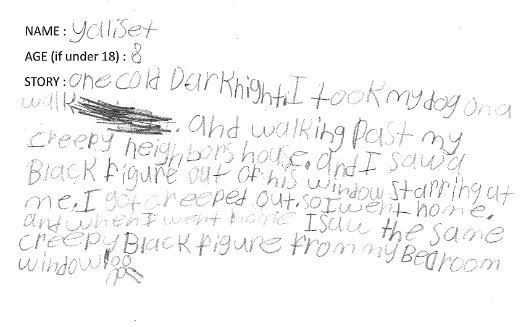 NAME : Yaliset
AGE (if under 18) : 8
STORY : one cold Dark night, I took my dog on a
walk . and walking Past my
creepy neighbors house. and I saw a
Black figure out of his window starring at
me. I got creeped out, so I went home.
and when I went home I saw the same
creepy Black figure from my Bedroom
window!